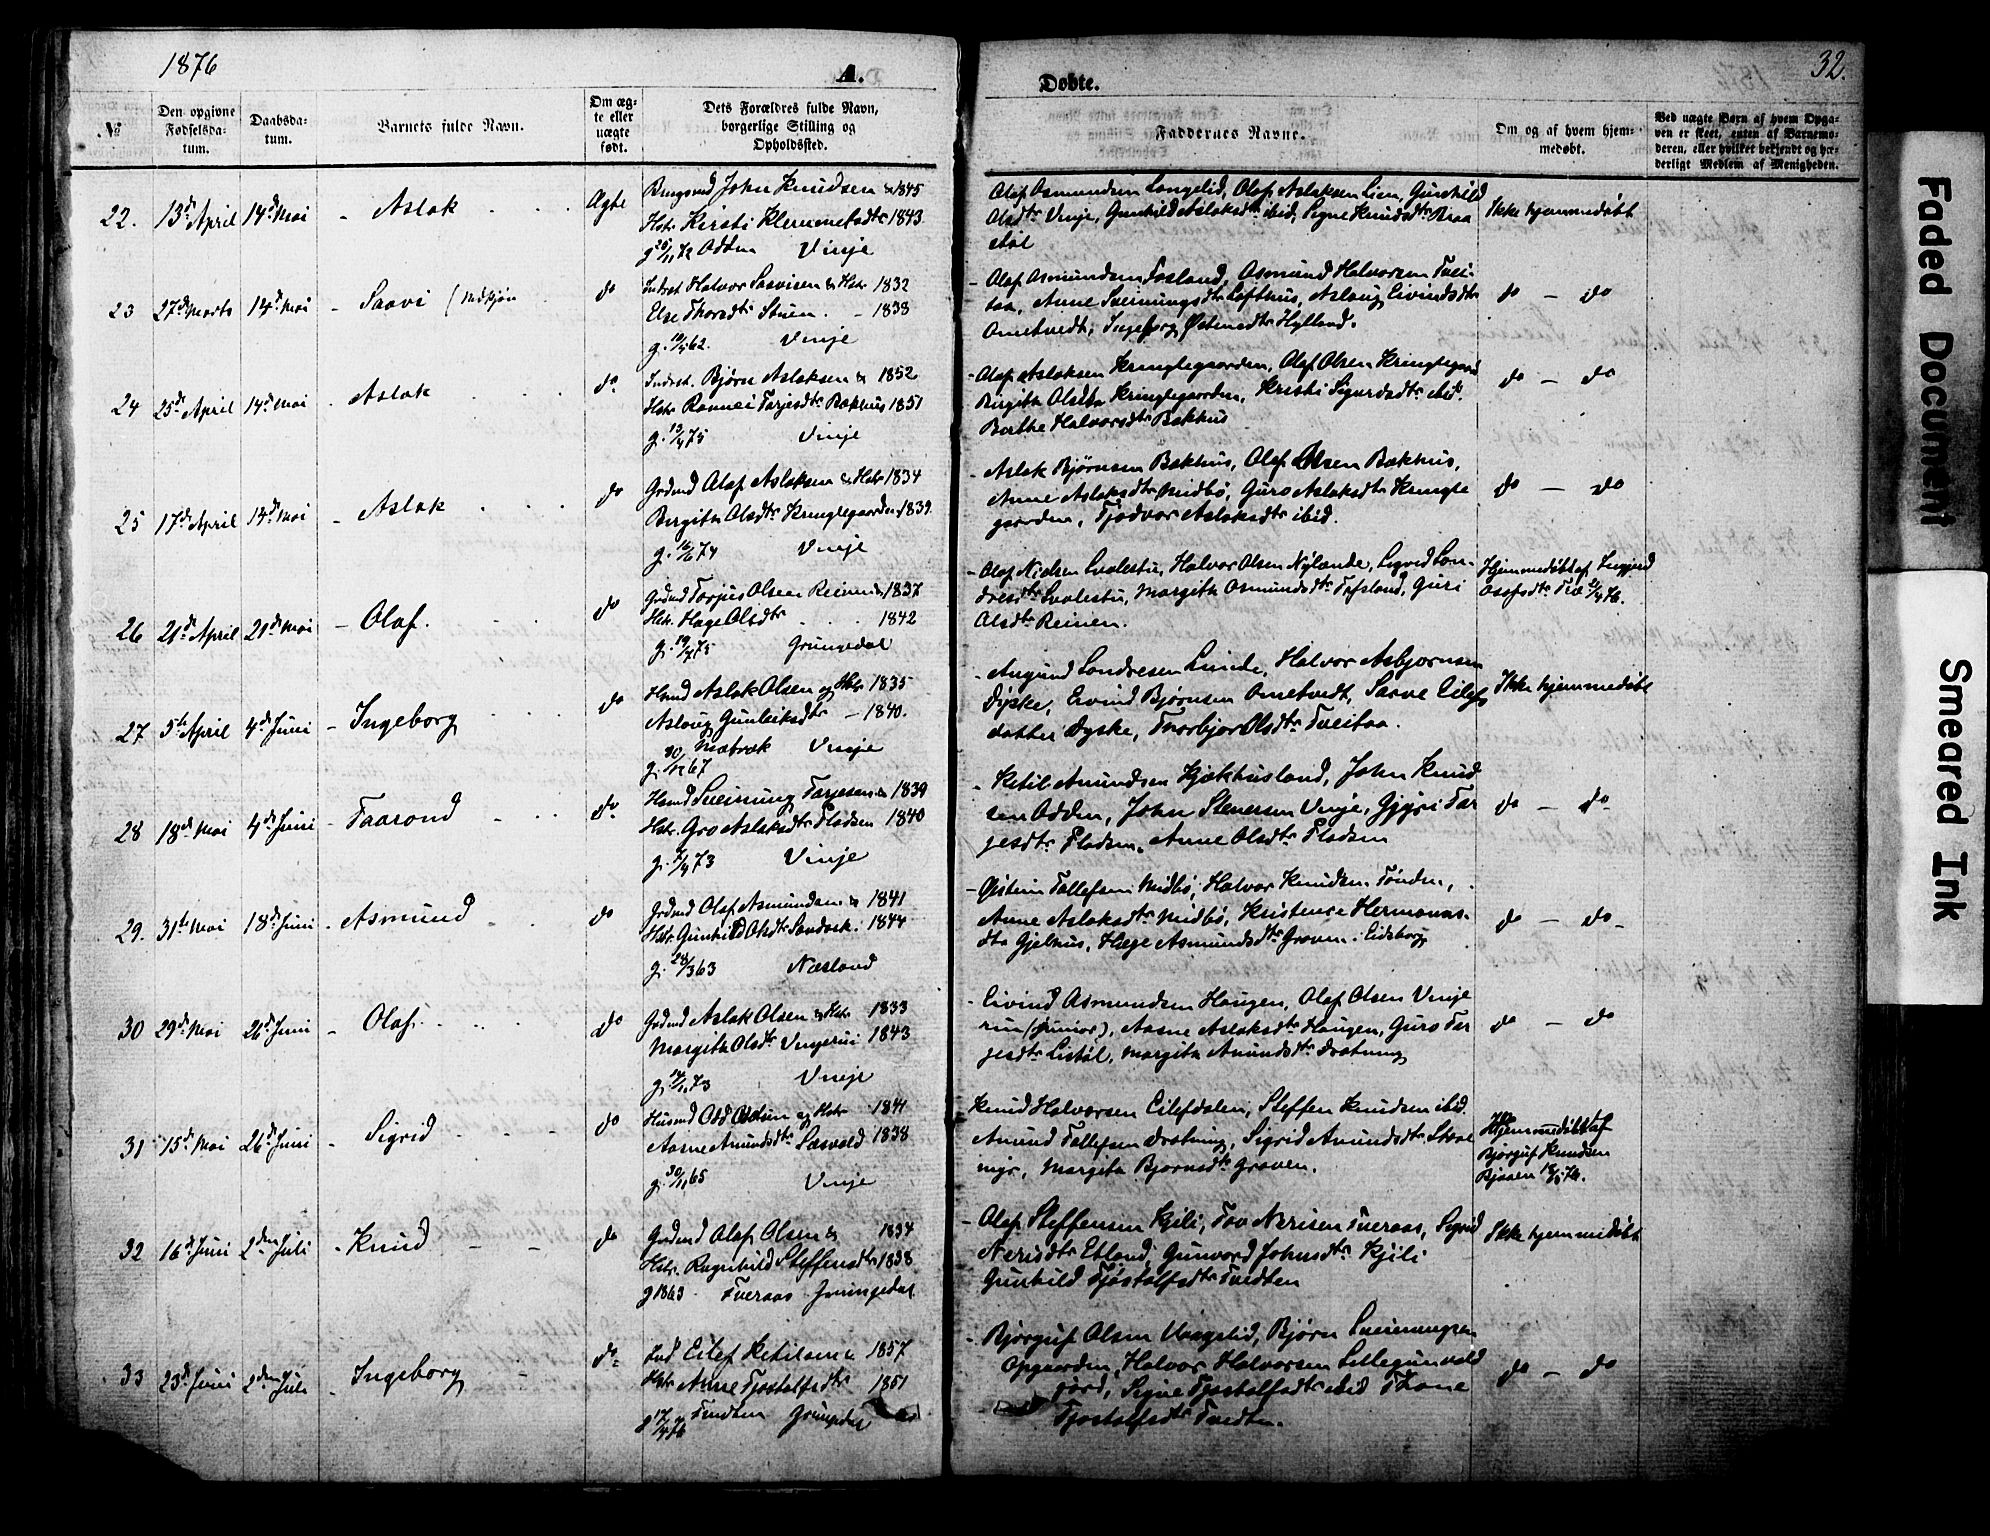 1876
A.
Døbte.
32.
№
Den opgivne Fødselsda-tum.
Daabsda-tum.
Barnets fulde Navn.
Om æg-te eller uægte født.
Dets Forældres fulde Navn, borgerlige Stilling og Opholdssted.
Faddernes Navne.
Om og af hvem hjem-medøbt.
Ved uægte Børn af hvem Opga-ven er skeet, enten af Barnemo-deren, eller hvilket bekjendt og hæ-derligt Medlem af Menigheden.
22. 13d April 14d Mai - Aslak Ægte
John Knudsen & 1845
Hstr Kirsti Klemmetsdtr 1843
g 26/11 72 Odden Vinje
Olaf Osmundsen Longelid, Olaf Aslaksen Lien, Gunhild
Olsdtr Vinje, Gunhild Aslaksdtr ibid, Signe Knudsdtr Braa
støl
Ikke hjemmedøbt
23 27d Marts 14d Mai - Saavi
do
Inderst Halvor Saavisen & Hstr 1832
Else Thorsdtr Stuen. - 1838
g. 62. Vinje
- Olaf Osmundsen Fosland, Osmund Halvorsen Tvei-
taa, Anne Sveinungsdtr Lofthus, Aslaug Eivindsdtr
Ometvedt, Ingeborg Østensdtr Hylland.
do - do
24 25d April 14d Mai . Aslak
do
Inderst. Bjørn Aslaksen & 1852
Hstr Ronnei Tarjesdtr Bakhus 1851
g. 13/4 75 Vinje
- Olaf Aslaksen Kringlegaarden, Olaf Olsen Kringlegaard
Birgith Olsdtr Kringlegaarden, Kristi Sigurdsdtr ibid.
Berthe Halvorsdtr Bakhus
do - do
25 17d April 14d Mai - Aslak
do
Grdmd Olaf Aslaksen & Hstr 1834
Birgith Olsdtr Kringlegaarden 1839
g. 16/6 74 Vinje
- Aslak Bjørnsen Bakhus, Olaf Olsen Bakhus,
Anne Aslaksdtr Midbø, Guro Aslaksdtr Kringle
gaarden, Tjodvor Aslaksdtr ibid.
do - do
26 21d April 21d Mai - Olaf.
do
Grdmd Tarjus Olsen Reinen & 1837
Hstr. Hæge Olsdtr 1842
g. 19/4 75 Grungedal
- Olaf Nielsen Svalestu, Halvor Olsen Nylænde, Sigrid Lon-
dresdtr Svalestu, Margith Osmundsdtr Tefsland, Guri
Olsdtr Reinen.
Hjemmedøbt af Ingjerd
27 5te April 4d Juni - Ingeborg
do
Hsmd Aslak Olsen og Hstr 1835
Aslaug Gunleiksdtr - 1840.
Mætræk Vinje
g. 67
- Augund Londresen Lunde, Halvor Asbjornsen
Dyske, Eivind Bjørnsen Ometvedt, Saave Eilefs
datter Dyske, Thorbjor Olsdtr Tveitaa.
Ikke hjemmedøbt
28 18d Mai 4d Juni - Taarond
do
Hsmd Sveinung Tarjesen & 1839
Hstr. Gro Aslaksdtr Flodsen 1840
g. 73 Vinje
- Ketil Anundsen Kjækhusland, John Knud
sen Odden, John Stenersen Vinje, Gjyri Tar
jesdtr Flodsen, Anne Olsdtr Flodsen
do - do
29. 31te Mai 18d Juni . Asmund
do
Grdmd Olaf Asmundsen & 1841
Hstr. Gunhild Olsdtr Sandsok. 1844
g. 28/3 63 Næsland
- Østein Tallefsen Midbø, Halvor Knudsen Tønden,
Anne Aslaksdtr Midbø, Kristence Hermanns-
dtr Gjelhus, Hæge Asmundsdtr Groven. Eidsborg
do - do
30 29d Mai 26d Juni - Olaf.
do
Grdmd Aslak Olsen & Hstr 1833
Margith Olsdtr Vinjerui 1843
g. 73 Vinje
- Eivind Osmundsen Haugen, Olaf Olsen Vinje
rui (junior), Aasne Aslaksdtr Haugen, Guro Tar
jesdtr Listøl, Margith Anundsdtr Dratning
do - do
31 15d Mai 26d Juni - Sigrid
do
Husmd Odd Odden og Hstr 1841
Aasne Anundsdtr Sasvold 1838
g. 30/11 65 Vinje
Knud Halvorsen Eilefdalen, Steffen Knudsen ibid.
Anund Tallefsen Dratning, Sigrid Anundsdtr
Margith Bjornsdtr Groven.
Hjemmedøbt af
Bjørguf Knudsen
32 16d Juni 2den Juli - Knud
do
Grdmd Olaf Olsen & 1834
Hstr. Ragnhild Steffensdtr 1838
g 1863 Tveraas Grungedal
- Olaf Steffensen Kjili, Tov Nerisen Tveraas, Sigrid
Nerisdtr Edland, Gunvord Johnsdtr Kjili
Gunhild Tjostolfsdtr Tvedten
Ikke hjemmedøbt
33 23d Juni 2den Juli - Ingeborg
do
Ind Eilef Ketilsen & 1857
Hstr Anne Tjostolfsdtr 1851
g 17/4 76 Tvedten Grungedal
- Bjørguf Olsen Vaagslid, Bjørn Sveinungsen
Opgaarden, Halvor Halvorsen Lillegunvald
jord, Signe Tjostolfsdtr ibid Thone
Tjostolfsdtr Tvedten.
do - do
Faded Document
Smeared Ink